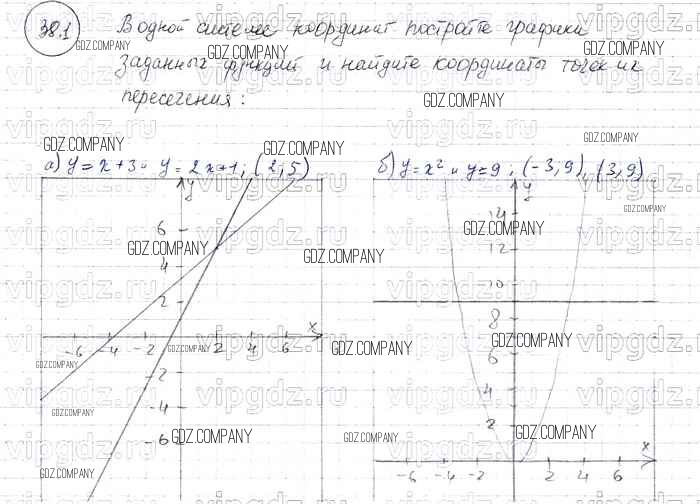 38.1 В одной системе координат постройте графики
заданных функций и найдите координаты точек их
пересечения:
а) y = x+3 и y = 2x+1; (2;5)
б) y = x² и y = 9; (-3,9), (3,9)
y
6
4
2
-6 -4 -2 2 4 6 x
-2
-4
-6
y
14
12
10
8
6
4
2
-6 -4 -2 2 4 6 x
GDZ.COMPANY
vipgdz.ru